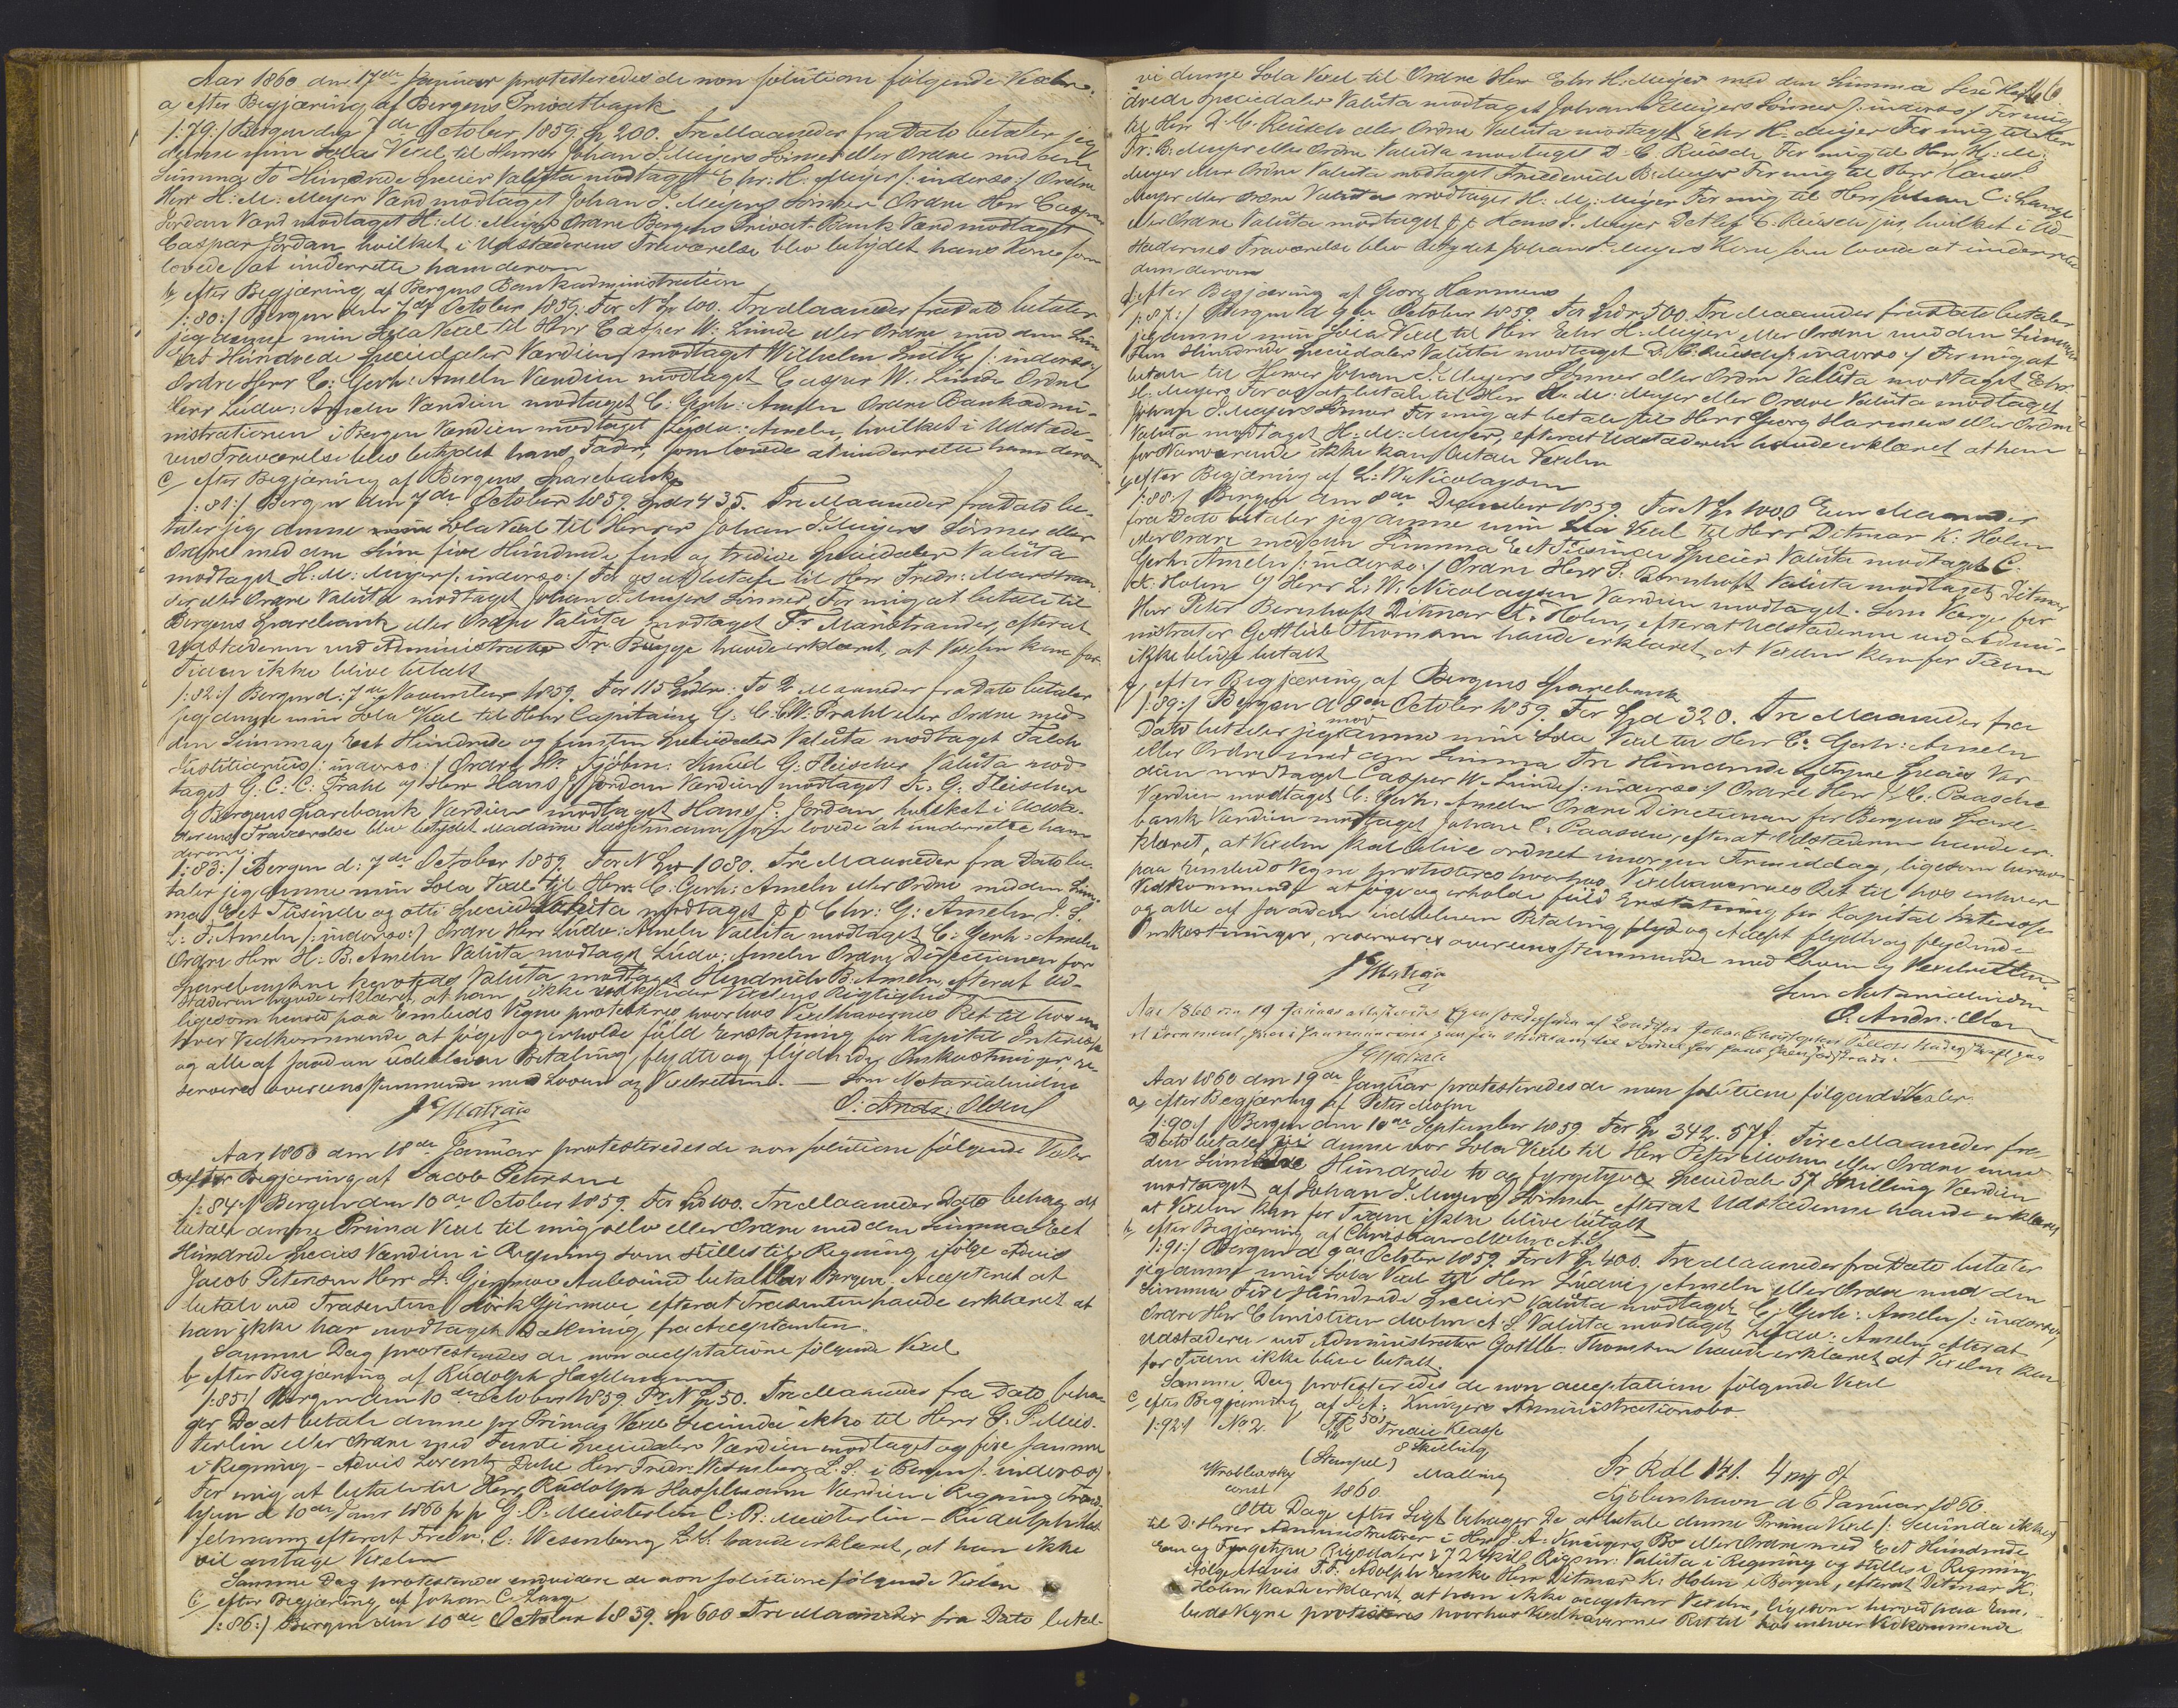 Aar 1860 den 17de Januar protesteredes de non solutione følgende Vexler.
a efter Begjæring af Bergens Privatbank
/:79:/ Bergen den 7de October 1859. Sp 200. Tre Maaneder fra Dato betaler jeg
denne min Sola Vexel til Herrer Johan J. Meyers Sönner eller Ordre med den
Summa To Hundrede Specier Valuta modtaget Ehr: H. Meyer /: indorso :/ Ordre
Herr H: M: Meyer Værd modtaget Johan J. Meyers Sönner Ordre Herr Caspar
Jordan Værd modtaget H: M: Meyer Ordre Bergens Privat-Bank Værd modtaget
Caspar Jordan, hvilket i Udstederens Fraværelse blev betydet hans Kone som
lovede at underrette ham derom
b, efter Begjæring af Bergens Bankadministration
/:80:/ Bergen den 7de October 1859. For N Sp 100. Tre Maaneder fra Dato betaler
jeg denne min Sola Vexel til Herr Casper W: Lunde eller Ordre med den Sum
Eet Hundrede Speciedaler Værdien modtaget Wilhelm Smith /: indorso:/
Ordre Herr C: Gerh: Ameln Værdien modtaget Casper W. Lunde Ordre
Herr Ludv: Ameln Værdien modtaget C: Gerh: Ameln Ordre Bankadmi-
nistrationen i Bergen Værdien modtaget Ludv: Ameln, hvilket i Udstede-
rens Fraværelse blev betydet hans Fader, som lovede at underrette ham derom.
c efter Begjæring af Bergens Sparebank
/:81:/ Bergen den 7de October 1859. Spdr 435. Tre Maaneder fra Dato be-
taler jeg denne min Sola Vexel til Herrer Johan J. Meyers Sönner eller
Ordre med den Sum fire Hundrede fem og tredive Speciedaler Valuta
modtaget H: M: Meyer /: indorso:/ For os at betale til Herr Fredr: Marstran
der eller Ordre Valuta modtaget Johan J. Meyers Sönner, For mig at betale til
Bergens Sparebank eller Ordre Valuta modtaget Fr Marstrander, efterat
Udstederen ved Administrator Fr. Brugge havde erklæret, at Vexlen kan for
Tiden ikke blive betalt
/:82:/ Bergen d: 7de November 1859. For 115 Spdlr: To 2 Maaneder fra Dato betaler
jeg denne min Sola Vexel til Herr Capitaine G. C. C. W: Prahl eller Ordre med
den Summa Eet Hundrede og femten Speciedaler Valuta modtaget Falch
Justitiarius /: indorso:/ Ordre Hr Kjöbm: Knud G: Fleischer Valuta mod
taget G. C: C: Prahl og Herr Hans J Jordan Værdien modtaget K: G: Fleischer
og Bergens Sparebank Værdien modtaget Hans J. Jordan, hvilket i Udste-
derens Fraværelse blev betydet Madame Hasselmann som lovede at underrette ham
derom.
/:83:/ Bergen d: 7de October 1859. For N Sp 1080. Tre Maaneder fra Dato be-
taler jeg denne min Sola Vexel til Herr C: Gerh: Ameln eller Ordre med den Sum
ma Eet Tusinde og otti Specied Valuta modtaget p p Chr: G: Ameln J. S.
L: F. Ameln /:indorso:/ Ordre Herr Ludv: Ameln Valuta modtaget C: Gerh: Ameln
Ordre Herr H: B. Ameln Valuta modtaget Ludv: Ameln Ordre Directionen for
Sparebankens Valuta modtaget Hendrich B. Ameln, efterat Ud-
stederen havde erklæret, at han ikke Vexlens Rigtighed
ligesom herved paa Embeds Vegne protesteres hvorhos Vexelhavernes Ret til hos en
hver Vedkommende at söge og erholde fuld Erstatning for Kapital Interesse
og alle af saadan udebleven Betaling flydte og flydende Omkostninger, re-
serveres overensstemmende med Loven og Vexelretten. — Som Notarialvidne
O: Andr: Olsen
Aar 1860 den 18de Januar protesteredes de non solutione følgende Vexler
a efter Begjæring af Jacob Petersen
/:84:/ Bergen den 10de October 1859. For Sp 100. Tre Maaneder Dato behag at
betale denne Prima Vexel til mig selv eller Ordre med den Summa Eet
Hundrede Species Værdien i Regning som stilles til Regning ifölge Advis
Jacob Petersen Herr L. Gjermoe Aalesund betalbar Bergen. Accepteret at
betale ved Trasenten Hörk Gjermoe, efterat Trasenten havde erklæret at
han ikke har modtaget Dækning fra Acceptanten.
Samme Dag protesteredes de non acceptatione følgende Vexel
b efter Begjæring af Rudolph Hasselmann
/:85:/ Bergen den 10de October 1859. Pr N Sp 50. Tre Maaneder fra Dato beha-
ger De at betale denne pr Prima Vexel Secunda ikke til Herr G. P. Meis-
terlin eller Ordre med Femti Speciedaler Værdien modtaget og före samme
i Regning - Advis Lorentz Juhl Herr Fredr. Wesenberg L. S. i Bergen /: indorso:/
For mig at betale til Herr Rudolph Hasselmann Værdien i Regning Trond-
hjem d 10de Janr 1860 pp G. P. Meisterlin C. P. Meisterlin - Rudolph Has-
selmann efterat Fredr. C: Wesenberg havde erklæret, at han ikke
vil antage Vexelen
Samme Dag protesteredes endvidere de non solutione følgende Vexler
c efter Begjæring af Johan C. Lange
/:86:/ Bergen den 10de October 1859. Sp 600 Tre Maaneder fra Dato betal-
66
vi denne Sola Vexel til Ordre Herr Ehr H: Meyer med den Summa Sex Hun
drede Speciedaler Valuta modtaget Johan J. Meyers Sönner /: indorso :/ For mig
til Herr D. C. Reusch eller Ordre Valuta modtaget Ehr H: Meyer For mig til Herr
Fr: B. Meyer eller Ordre Valuta modtaget D. C. Reusch For mig til Herr H: M:
Meyer eller Ordre Valuta modtaget Friederich B. Meyer For mig til Herr
Meyer eller Ordre Valuta modtaget H. M. Meyer For mig til Herr Johan C: Lange
eller Ordre Valuta modtaget p p Hans J. Meyer Detlef C: Reusch jun, hvilket i Ud-
stedernes Fraværelse blev betydet Johan J Meyers Kone som lovede at underrette
dem derom
d efter Begjæring af Georg Harmens
/:87:/ Bergen d 9de October 1859. For Spdr 500. Tre Maaneder fra Dato betaler
jeg denne min Sola Vexel til Herr Ehr H: Meyer eller Ordre med den Summa
Fem Hundrede Speciedaler Valuta modtaget D. C. Reusch /: indorso :/ For mig at
betale til Herrer Johan J. Meyers Sönner eller Ordre Valuta modtaget Ehr
H. Meyer For os at betale til Herr H. M: Meyer eller Ordre Valuta modtaget
Johan J. Meyers Sönner For mig at betale til Herr Georg Harmens eller Ordre
Valuta modtaget H: M: Meyer, efterat Udstederen havde erklæret at han
for Nærværende ikke kan betale Vexelen
e, efter Begjæring af L: W. Nicolaysen
/:88:/ Bergen den 8de December 1859. For N Sp 1000 Een Maaned
fra Dato betaler jeg denne min Sola Vexel til Herr Ditmar K: Holm
eller Ordre med den Summa Eet Tusinde Specier Valuta modtaget C.
Gerh: Ameln /: indorso:/ Ordre Herr P. Bernhoft Valuta modtaget Ditmar
K: Holm og Herr L: W: Nicolaysen Værdien modtaget. Som Værge for
Herr Peter Bernhoft Ditmar K: Holm, efterat Udstederen ved Admi-
nistrator Gottlieb Thomsen havde erklæret, at Vexlen kan for Tiden
ikke blive betalt
f, efter Begjæring af Bergens Sparebank
/:89:/ Bergen d 8de October 1859. For Spd 320. Tre Maaneder fra
Dato betaler jeg mod denne min Sola Vexel til Herr C. Gerh: Ameln
eller Ordre med den Summa Tre Hundrede og tyve Species Vær-
dien modtaget Casper W. Lunde /: indorso :/ Ordre Herr J. C. Paasche
Værdien modtaget C: Gerh: Ameln Ordre Directionen for Bergens Spare-
bank Værdien modtaget Johan C. Paasche, efterat Udstederen havde er-
klæret, at Vexlen skal blive ordnet imorgen Formiddag, ligesom herved
paa Embeds Vegne protesteres hvorhos Vexelhavernes Ret til hos enhver
Vedkommende at søge og erholde fuld Erstatning for Kapital Interesse
og alle af saadan udebleven Betaling flydte og flydende
Omkostninger, reserveres overensstemmende med Loven og Vexelretten.
Som Notarialvidne
O. Andr: Olsen
Aar 1860 den 19 Januar
Aar 1860 den 19de Januar protesteredes de non solutione følgende Vexler.
a, efter Begjæring af Peter Mohn
/:90:/ Bergen den 10de September 1859 For Sp 342. 57ß. Fire Maaneder fra
Dato betaler vi denne vor Sola Vexel til Herr Peter Mohn eller Ordre med
den Summa Hundrede to og fyrgetyve Speciedaler 57 Skilling Værdien
modtaget af Johan J. Meyers Sönner efterat Udstederne havde erklæret
at Vexlen kan for Tiden ikke blive betalt
b, efter Begjæring af Christian Mohn A. S
/:91:/ Bergen d 9de October 1859. For N Sp 400. Tre Maaneder fra Dato betaler
jeg denne min Sola Vexel til Herr Ludvig Ameln eller Ordre med den
Summa Fire Hundrede Specier Valuta modtaget C: Gerh: Ameln /: indorso:/
Ordre Herr Christian Mohn A. S Valuta modtaget Ludv: Ameln efterat
Udstederen ved Administrator Gottlb. Thomsen havde erklæret at Vexelen kan
for Tiden ikke blive betalt.
Samme Dag protesteredes de non acceptatione følgende Vexel
c efter Begjæring af J. A: Krügers Administrationsbo
/:92:/ No 2. Tredie Klasse
8 Skilling
(Stempel)
Wroblewsky Malling
const 1860.
Pr Rdl 141. 4 mk 8ß
Kjöbenhavn d 6 Januar 1860
Otte Dage efter Sigt behager De at betale denne Prima Vexel /: Secunda ikke:/
til D'Herrer Administratorer i Herr J. A: Krügers Bo eller Ordre med Eet Hundrede
Een og Fyrgetyve Rigsdaler 72 Skill Rigsm: Valuta i Regning og stilles i Regning
ifölge Advis T.F. Adolph Herr Ditmar K: Holm i Bergen, efterat Ditmar K:
Holm havde erklæret, at han ikke accepterer Vexelen, ligesom herved paa Em-
beds Vegne protesteres hvorhos Vexelhavernes Ret til hos enhver Vedkommende